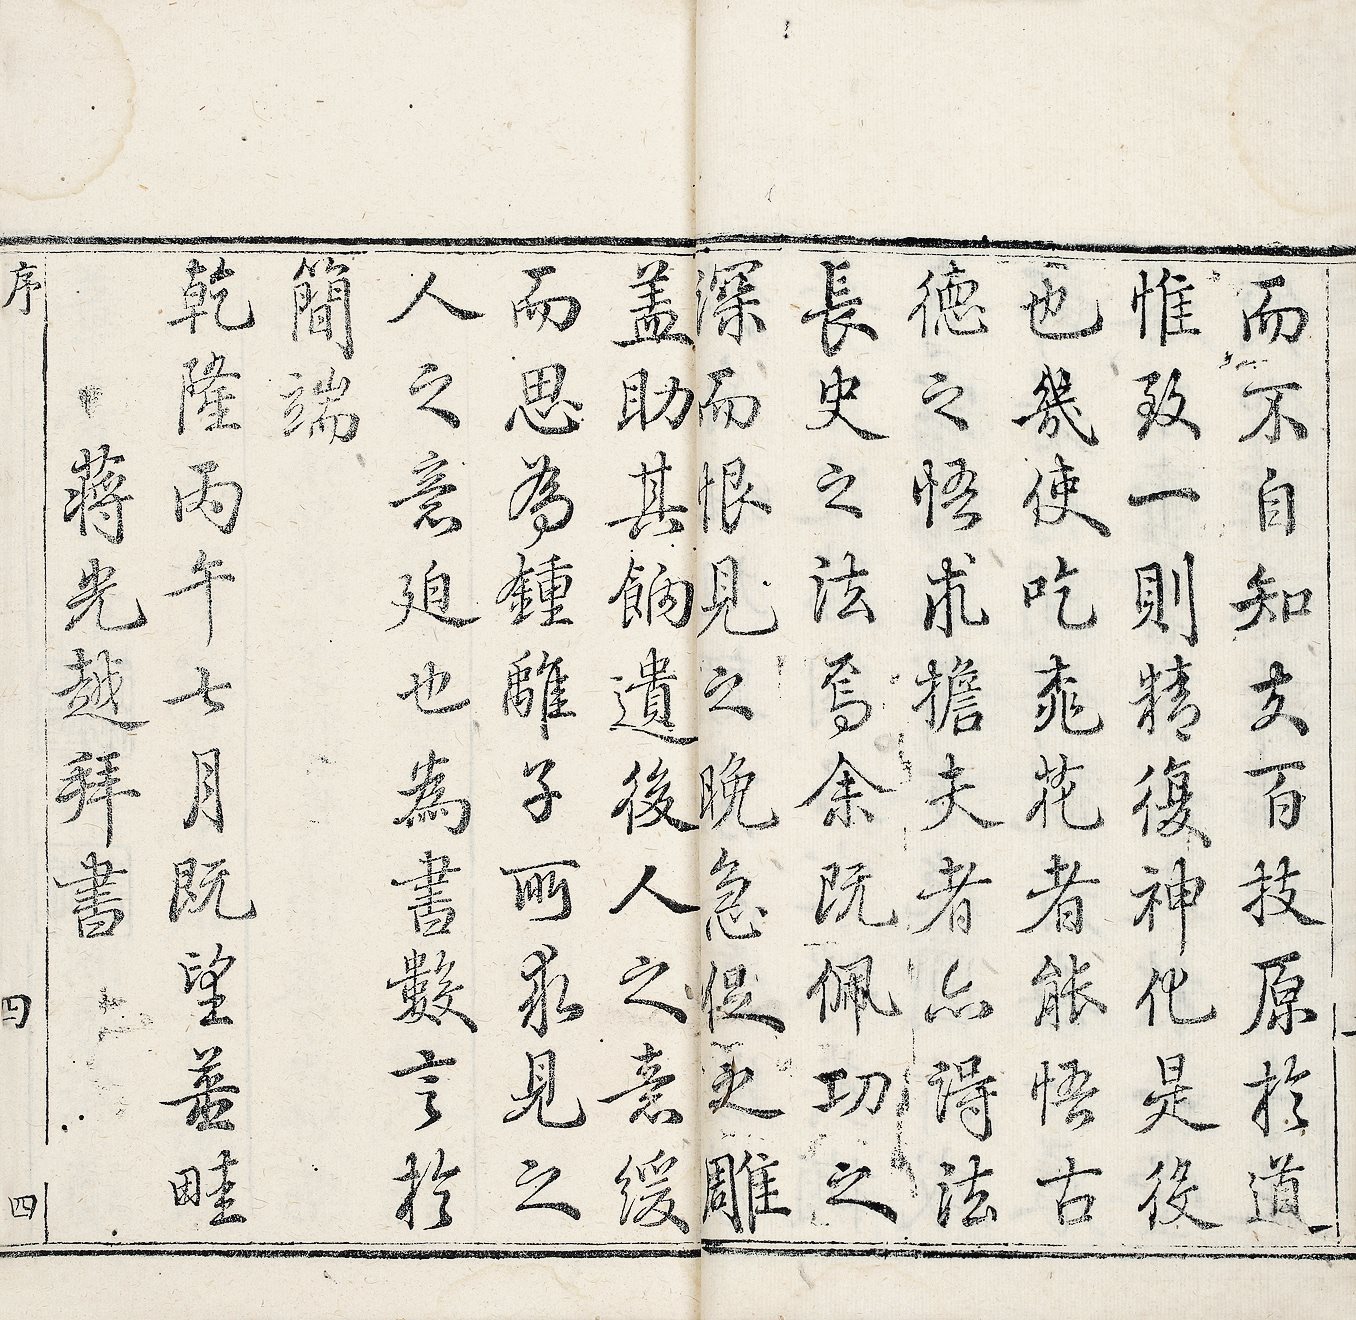 而不自知夫百技原於道
惟致一則精復神化是後
也幾使吃桃花者能悟古
德之悟求擔夫者亦得法
長史之法焉余既佩功之
深而恨見之晚急促更雕
蓋助其餉遺後人之意緩
而思為鍾離子所求見之
人之意廹也為書數言於
簡端
乾隆丙午七月既望蓉畦
蔣光越拜書
序
四
四